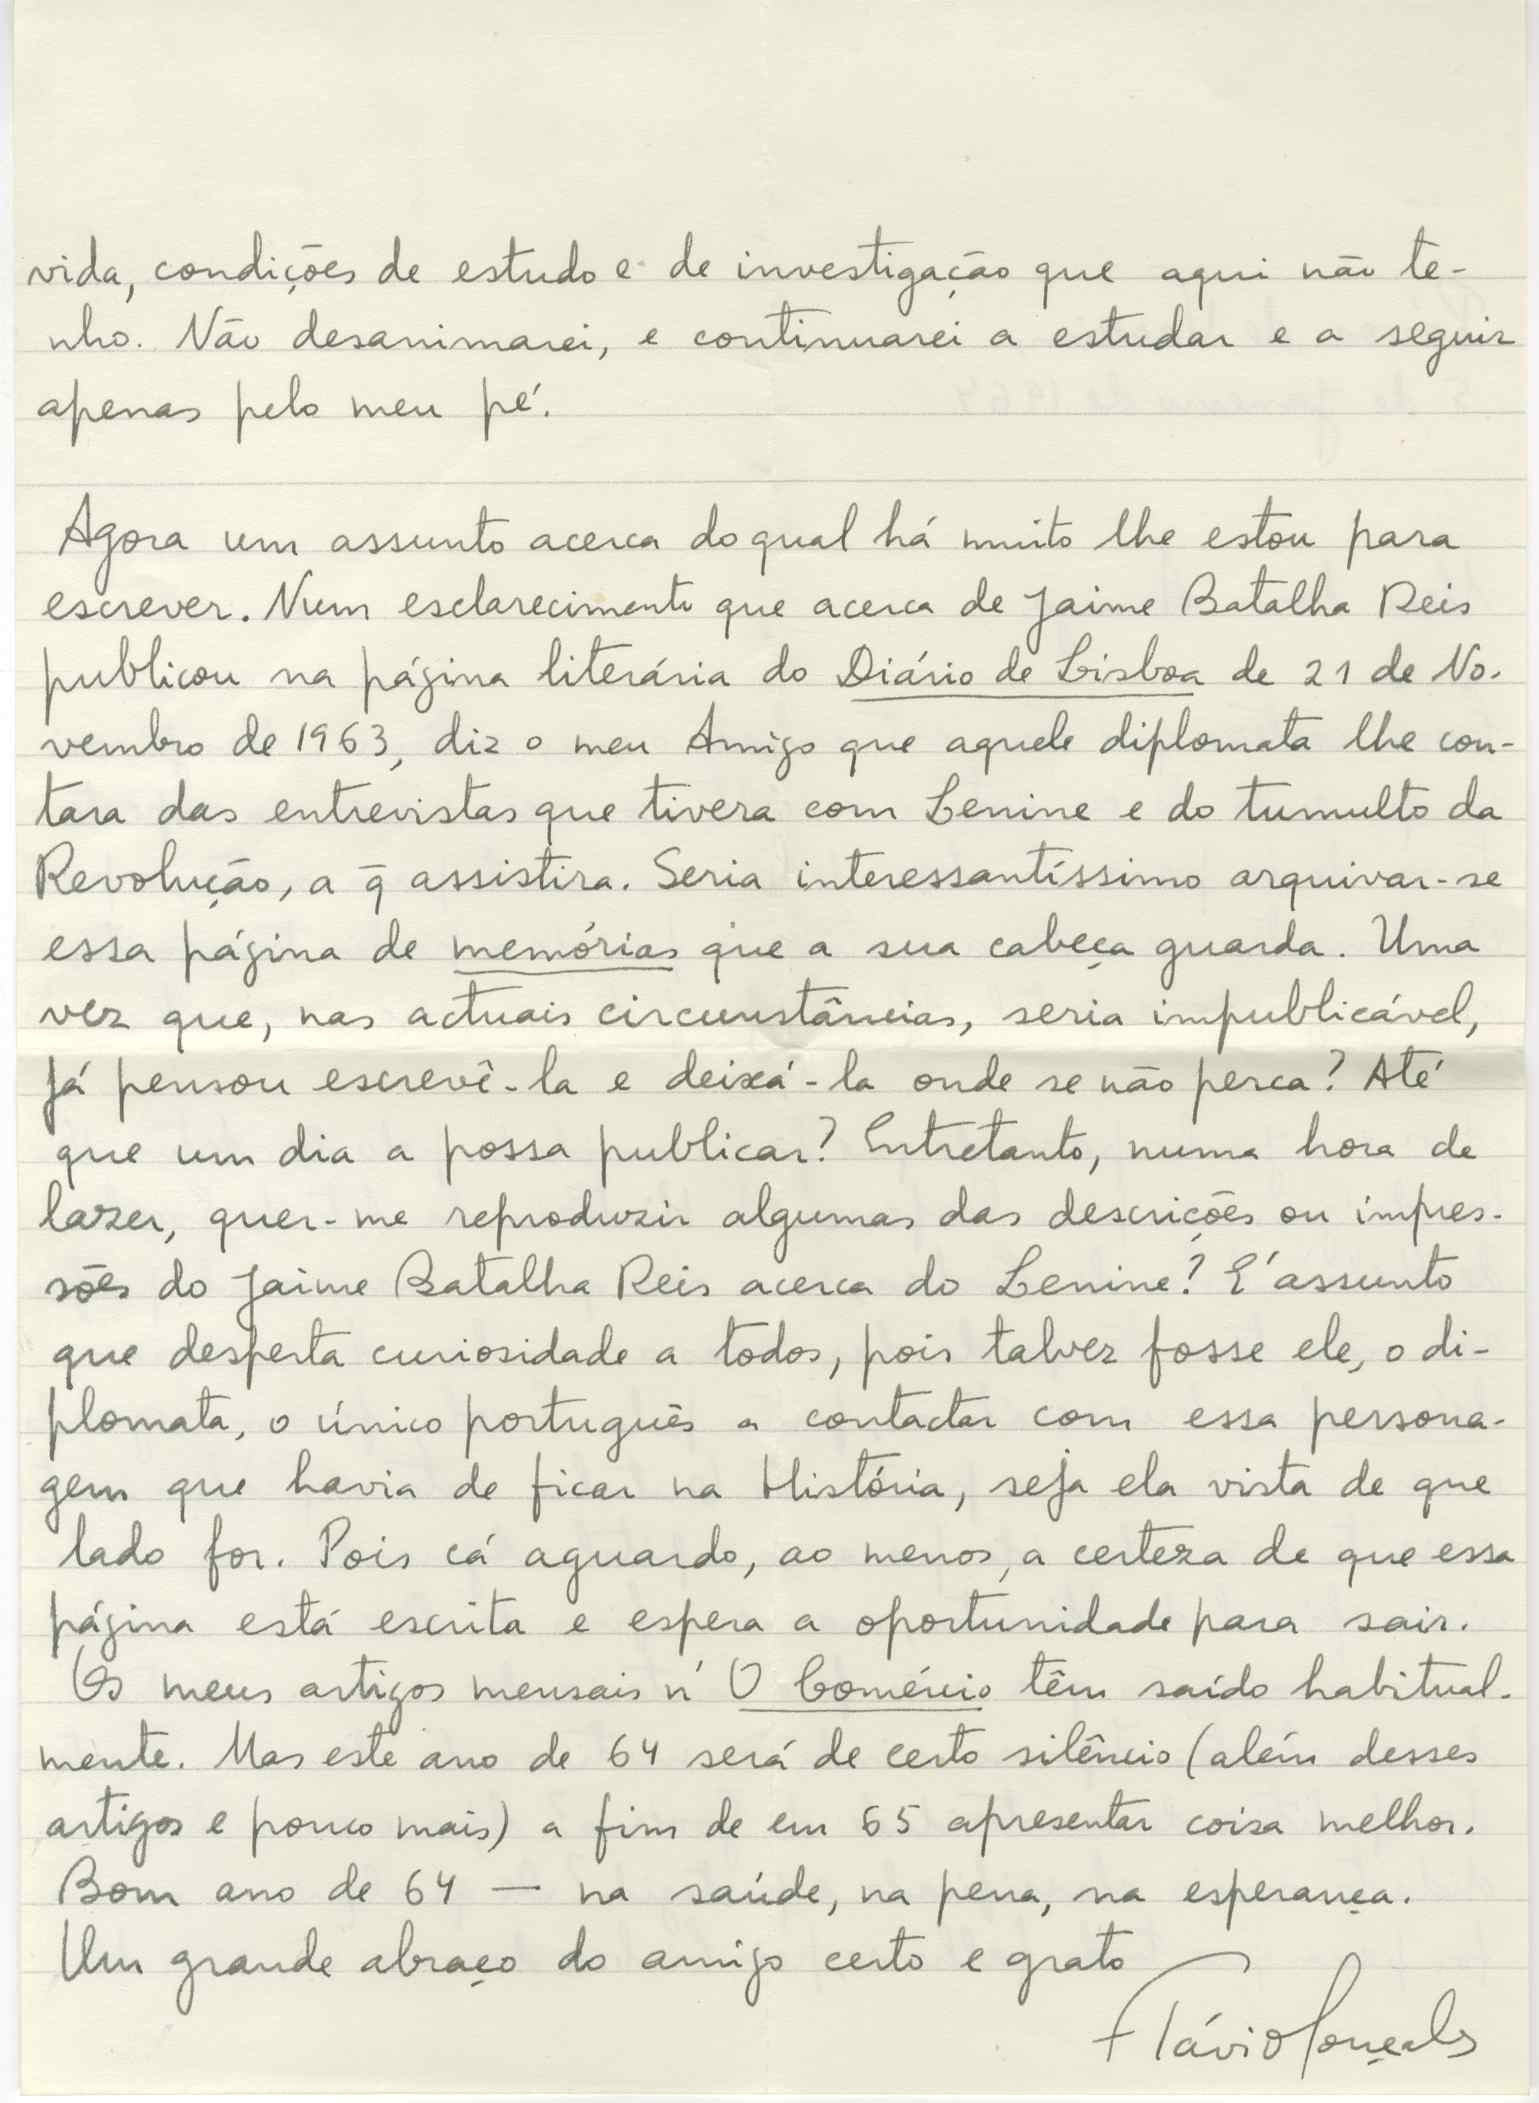 vida, condições de estudo e de investigação que aqui não te-
nho. Não desanimarei, e continuarei a estudar e a seguir
apenas pelo meu pé.
Agora um assunto acerca do qual há muito lhe estou para
escrever. Num esclarecimento que acerca de Jaime Batalha Reis
publicou na página literária do Diário de Lisboa de 21 de No-
vembro de 1963, diz o meu Amigo que aquele diplomata lhe con-
tara das entrevistas que tivera com Lenine e do tumulto da
Revolução, a q̄ assistira. Seria interessantíssimo arquivar-se
essa página de memórias que a sua cabeça guarda. Uma
vez que, nas actuais circunstâncias, seria impublicável,
já pensou escrevê-la e deixá-la onde se não perca? Até
que um dia a possa publicar? Entretanto, numa hora de
lazer, quer-me reproduzir algumas das descrições ou impres-
sões do Jaime Batalha Reis acerca do Lenine? É assunto
que desperta curiosidade a todos, pois talvez fosse ele, o di-
plomata, o único português a contactar com essa persona-
gem que havia de ficar na História, seja ela vista de que
lado for. Pois cá aguardo, ao menos, a certeza de que essa
página está escrita e espera a oportunidade para sair.
Os meus artigos mensais n' O Comércio têm saído habitual-
mente. Mas este ano de 64 será de certo silêncio (além desses
artigos e pouco mais) a fim de em 65 apresentar coisa melhor.
Bom ano de 64 — na saúde, na pena, na esperança.
Um grande abraço do amigo certo e grato
Flávio Gonçalves